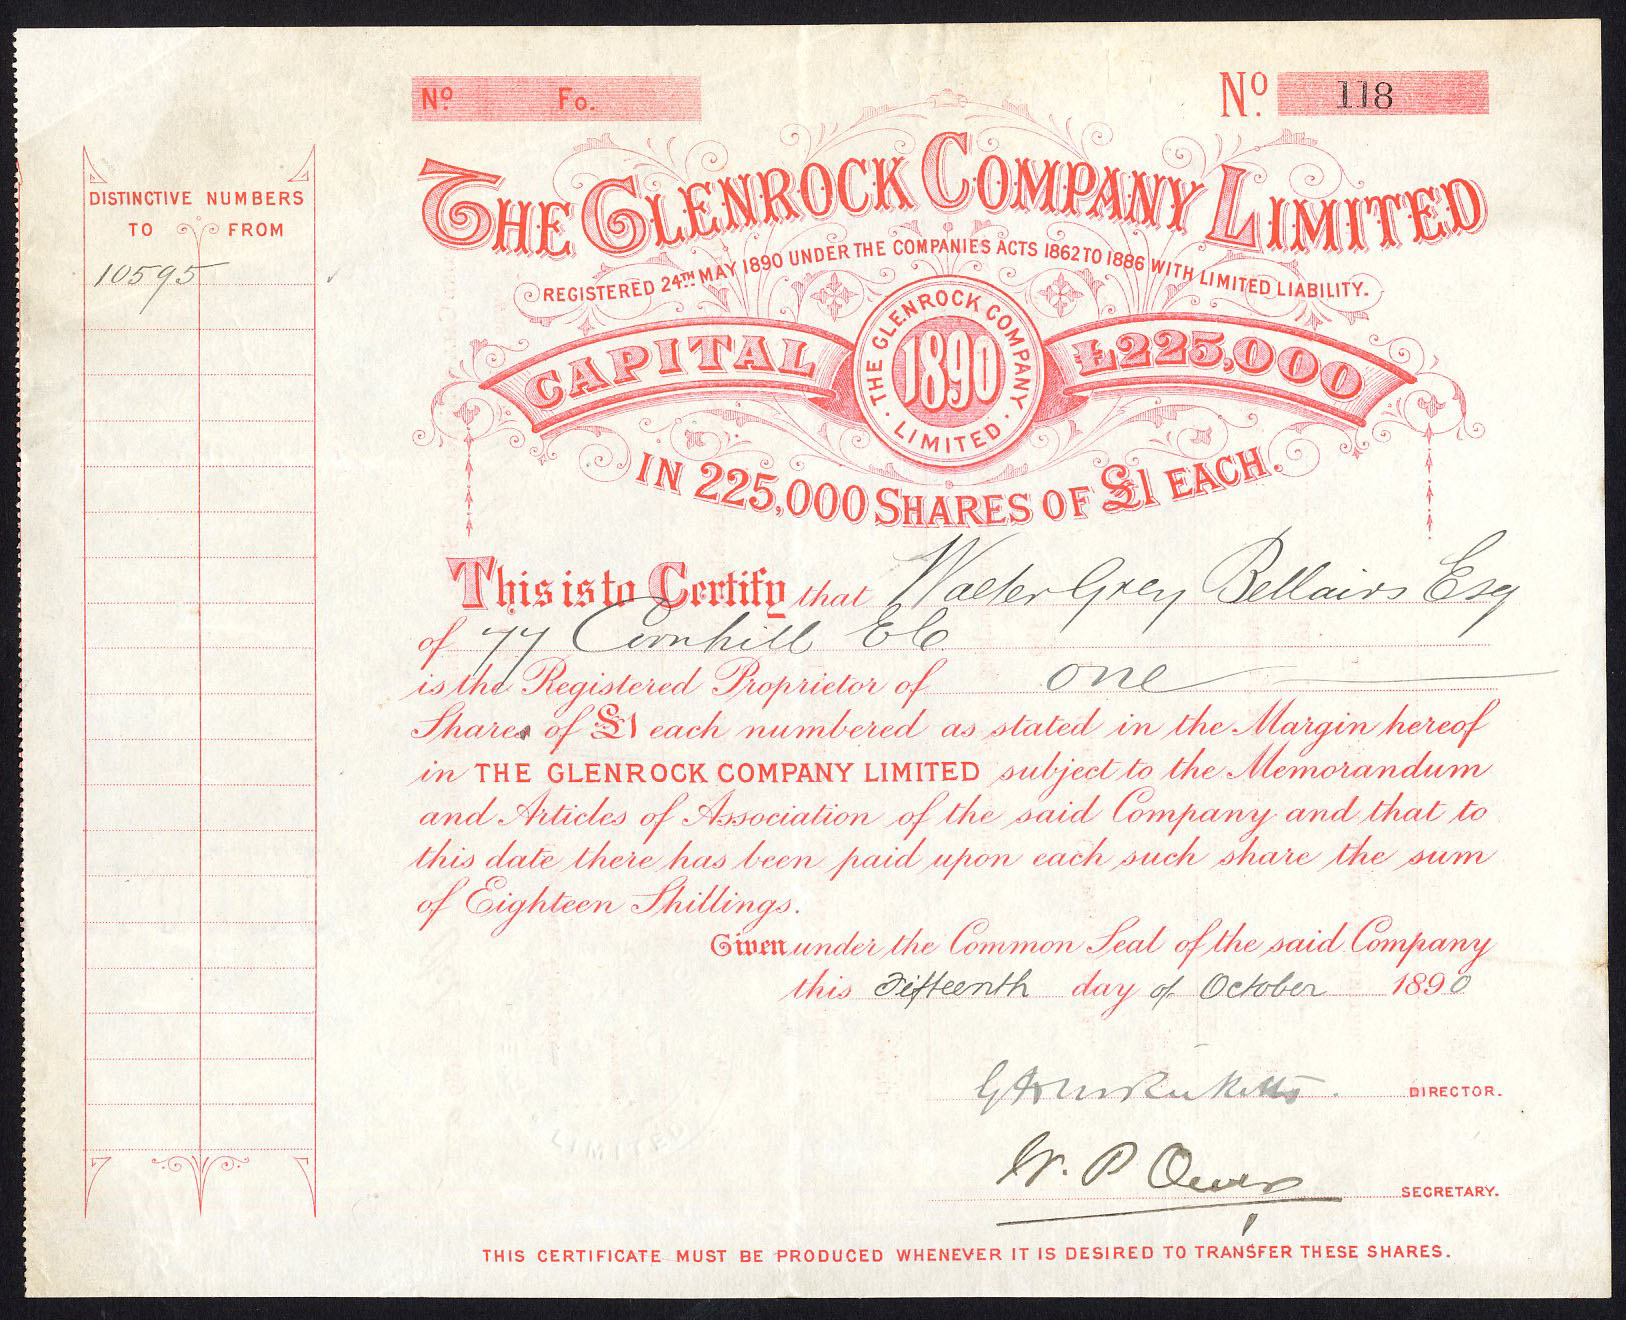 Nº. Fo.
Nº. 118
DISTINCTIVE NUMBERS
TO FROM
10595
THE GLENROCK COMPANY LIMITED
REGISTERED 24TH MAY 1890 UNDER THE COMPANIES ACTS 1862 TO 1886 WITH LIMITED LIABILITY.
CAPITAL £225,000
THE GLENROCK COMPANY
1890
LIMITED
IN 225,000 SHARES OF £1 EACH.
This is to Certify that Walter Grey Bellairs Esq
of 77 Cornhill EC
is the Registered Proprietor of one
Shares of £1 each numbered as stated in the Margin hereof
in THE GLENROCK COMPANY LIMITED subject to the Memorandum
and Articles of Association of the said Company and that to
this date there has been paid upon each such share the sum
of Eighteen Shillings.
Given under the Common Seal of the said Company
this Fifteenth day of October 1890
Ricketts DIRECTOR.
W. P. Owen SECRETARY.
LIMITED
THIS CERTIFICATE MUST BE PRODUCED WHENEVER IT IS DESIRED TO TRANSFER THESE SHARES.